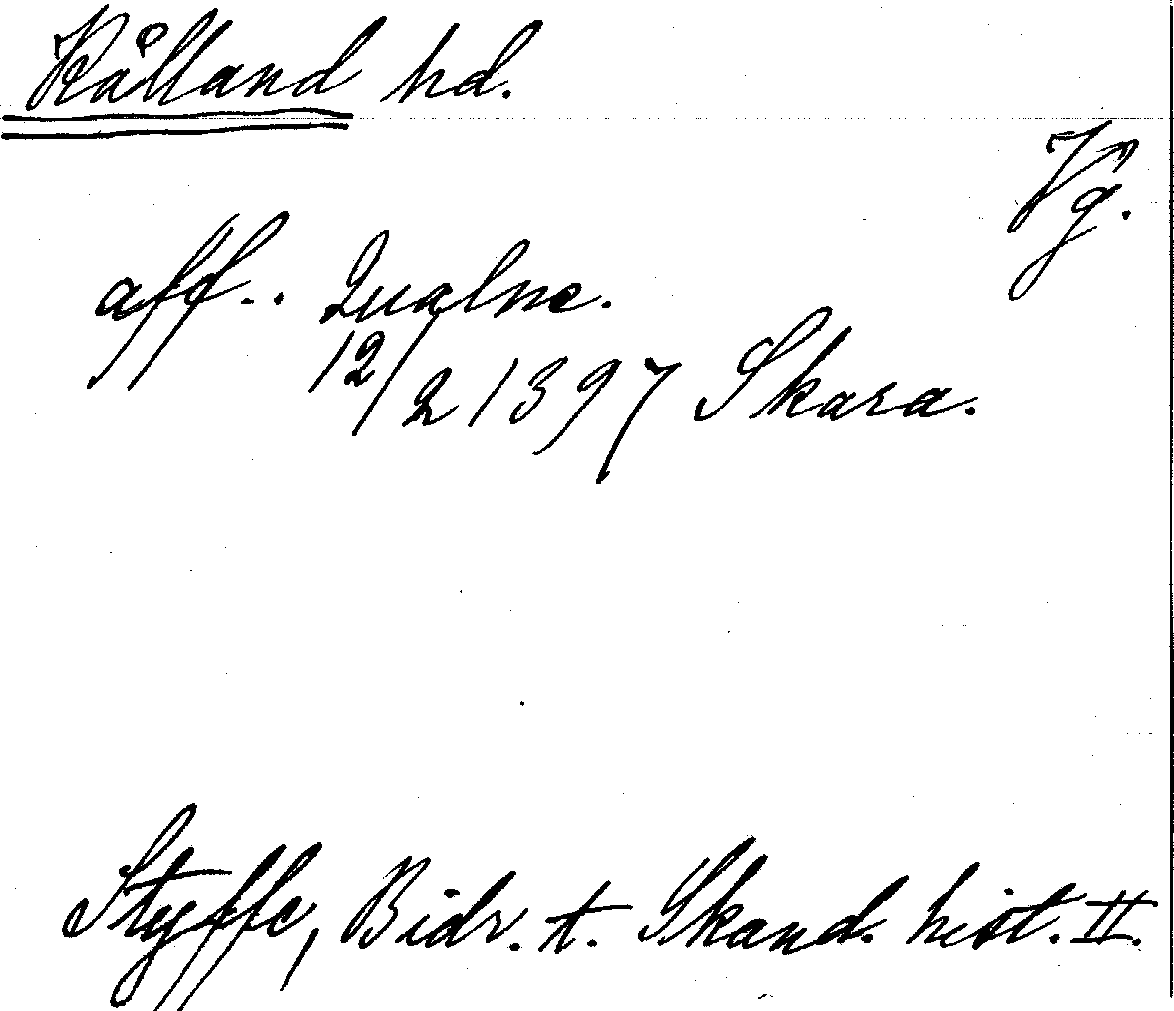 Kålland hd.
Vg.
aff.. Qualne.
12/2 1397 Skara.
Styffe, Bidr. t. Skand. hist. II.